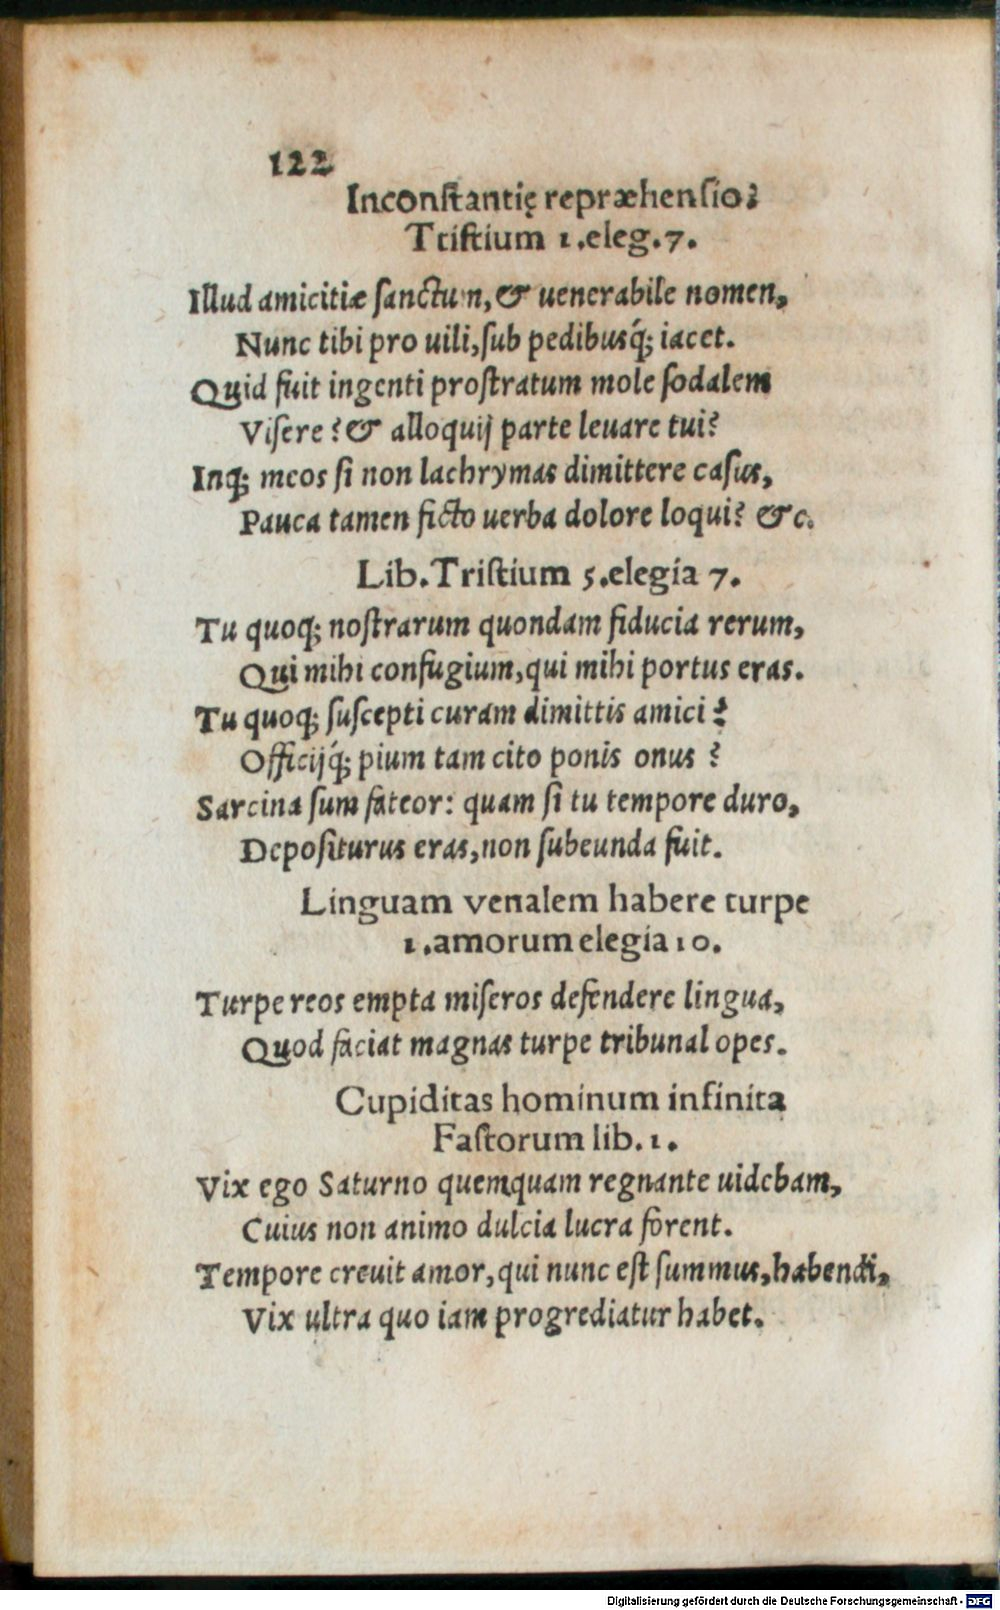 122
Inconſtantię repræhenſio?
Triſtium 1.eleg.7.
Illud amicitiæ ſanctum,& uenerabile nomen,
Nunc tibi pro uili,ſub pedibusq́; iacet.
Quid fuit ingenti proſtratum mole ſodalem
Viſere ?& alloquij parte leuare tui?
Inq; meos ſi non lachrymas dimittere caſus,
Pauca tamen ficto uerba dolore loqui? &c.
Lib.Triſtium 5.elegia 7.
Tu quoq; noſtrarum quondam fiducia rerum,
Qui mihi confugium,qui mihi portus eras.
Tu quoq; ſuſcepti curam dimittis amici ?
Officijq́; pium tam cito ponis onus ?
Sarcina ſum fateor: quam ſi tu tempore duro,
Depoſiturus eras,non ſubeunda fuit.
Linguam venalem habere turpe
1.amorum elegia 10.
Turpe reos empta miſeros defendere lingua,
Quod faciat magnas turpe tribunal opes.
Cupiditas hominum infinita
Faſtorum lib.1.
Vix ego Saturno quemquam regnante uidebam,
Cuius non animo dulcia lucra forent.
Tempore creuit amor,qui nunc eſt ſummus,habendi,
Vix ultra quo iam progrediatur habet.
Digitalisierung gefördert durch die Deutsche Forschungsgemeinschaft - DFG